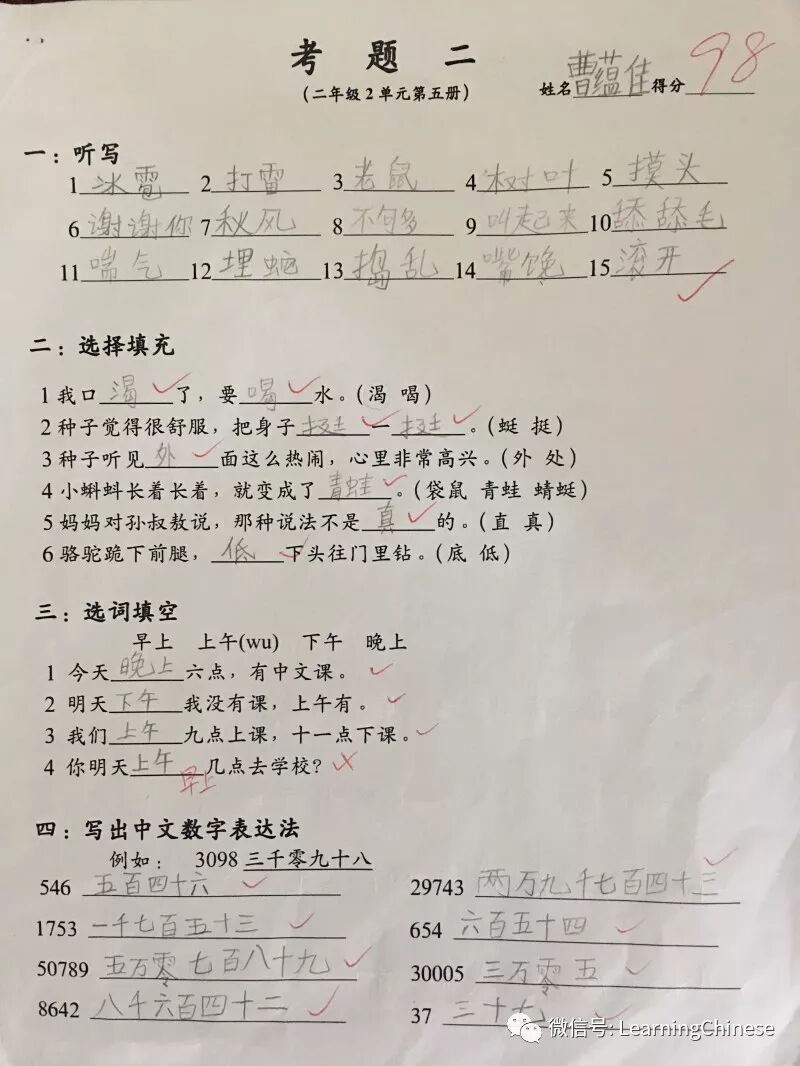 考 题 二
(二年级2单元第五册)
姓名曹蕴佳得分98
一：听写
1 冰雹 2 打雷 3 老鼠 4 树叶 5 摸头
6 谢谢你 7 秋风 8 不够多 9 叫起来 10 舔舔毛
11 喘气 12 埋蛇 13 捣乱 14 嘴馋 15 滚开
二：选择填充
1 我口渴了，要喝水。(渴 喝)
2 种子觉得很舒服，把身子挺一挺。(蜓 挺)
3 种子听见外面这么热闹，心里非常高兴。(外 处)
4 小蝌蚪长着长着，就变成了青蛙。(袋鼠 青蛙 蜻蜓)
5 妈妈对孙叔敖说，那种说法不是真的。(直 真)
6 骆驼跪下前腿，低下头往门里钻。(底 低)
三：选词填空
早上 上午(wu) 下午 晚上
1 今天晚上六点，有中文课。
2 明天下午我没有课，上午有。
3 我们上午九点上课，十一点下课。
4 你明天上午几点去学校？
早上
四：写出中文数字表达法
例如： 3098 三千零九十八
546 五百四十六 29743 两万九千七百四十三
1753 一千七百五十三 654 六百五十四
50789 五万零七百八十九 30005 三万零五
8642 八千六百四十二 37 三十七
微信号: LearningChinese